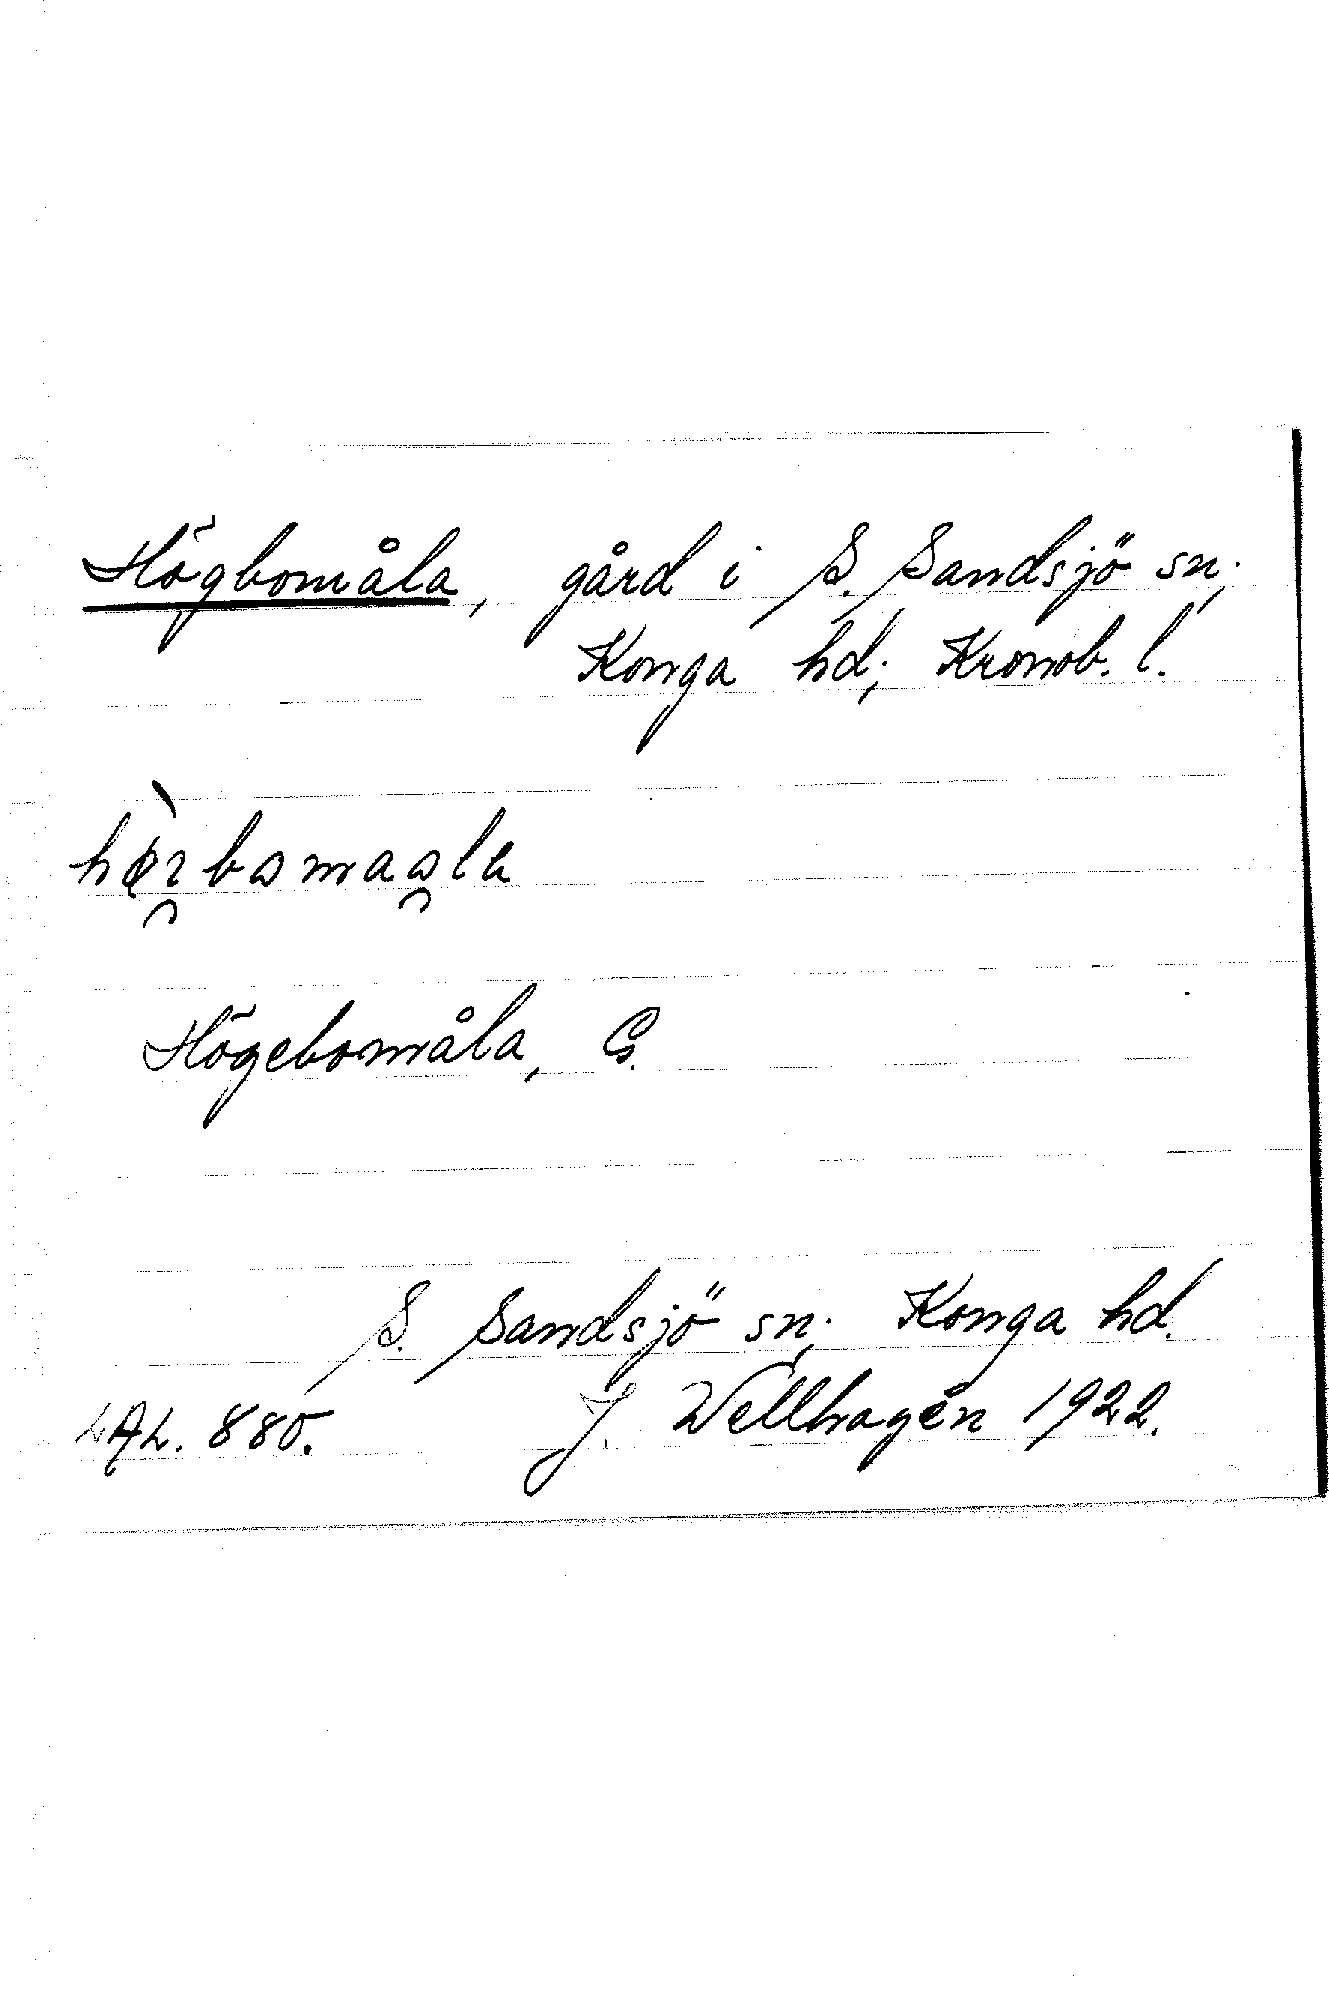 Högbomåla, gård i S. Sandsjö sn,
Konga hd; Kronob. l.
Högebomåla, G.
S. Sandsjö sn, Konga hd.
LAL. 880. J. Wellhagen 1922.